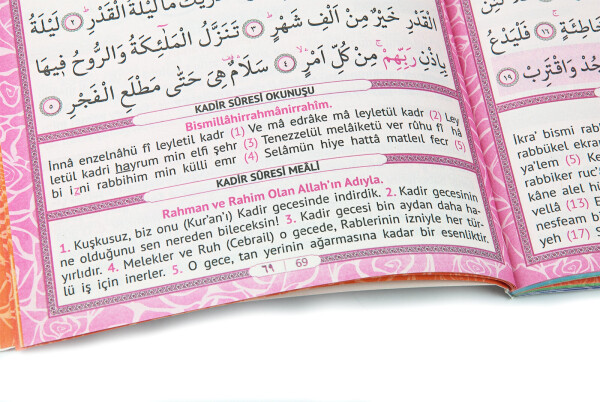 الْقَدْرِ خَيْرٌ مِنْ اَلْفِ شَهْرٍ ﴿٣﴾ تَنَزَّلُ الْمَلٰٓئِكَةُ وَالرُّوحُ فٖيهَا
بِاِذْنِ رَبِّهِمْ مِنْ كُلِّ اَمْرٍ ﴿٤﴾ سَلَامٌ هِيَ حَتّٰى مَطْلَعِ الْفَجْرِ ﴿٥﴾
KADİR SÛRESİ OKUNUŞU
Bismillâhirrahmânirrahîm.
İnnâ enzelnâhü fî leyletil kadr (1) Ve mâ edrâke mâ leyletül kadr (2) Ley
letül kadri hayrum min elfi şehr (3) Tenezzelül melâiketü ver rûhu fî hâ
bi izni rabbihim min külli emr (4) Selâmün hiye hattâ matleıl fecr (5)
KADİR SÛRESİ MEÂLİ
Rahman ve Rahim Olan Allah'ın Adıyla.
1. Kuşkusuz, biz onu (Kur'an'ı) Kadir gecesinde indirdik. 2. Kadir gecesinin
ne olduğunu sen nereden bileceksin! 3. Kadir gecesi bin aydan daha ha-
yırlıdır. 4. Melekler ve Ruh (Cebrail) o gecede, Rablerinin izniyle her tür-
lü iş için inerler. 5. O gece, tan yerinin ağarmasına kadar bir esenliktir.
٦٩ 69
فَلْيَدْعُ
وَاقْتَرِبْ ﴿١٩﴾
Ikra' bismi rabb
rabbükel ekram
ya'lem (5) Ke
rabbike ruc'
yellâ (13) E
nesfeam bi
yeh (17) S